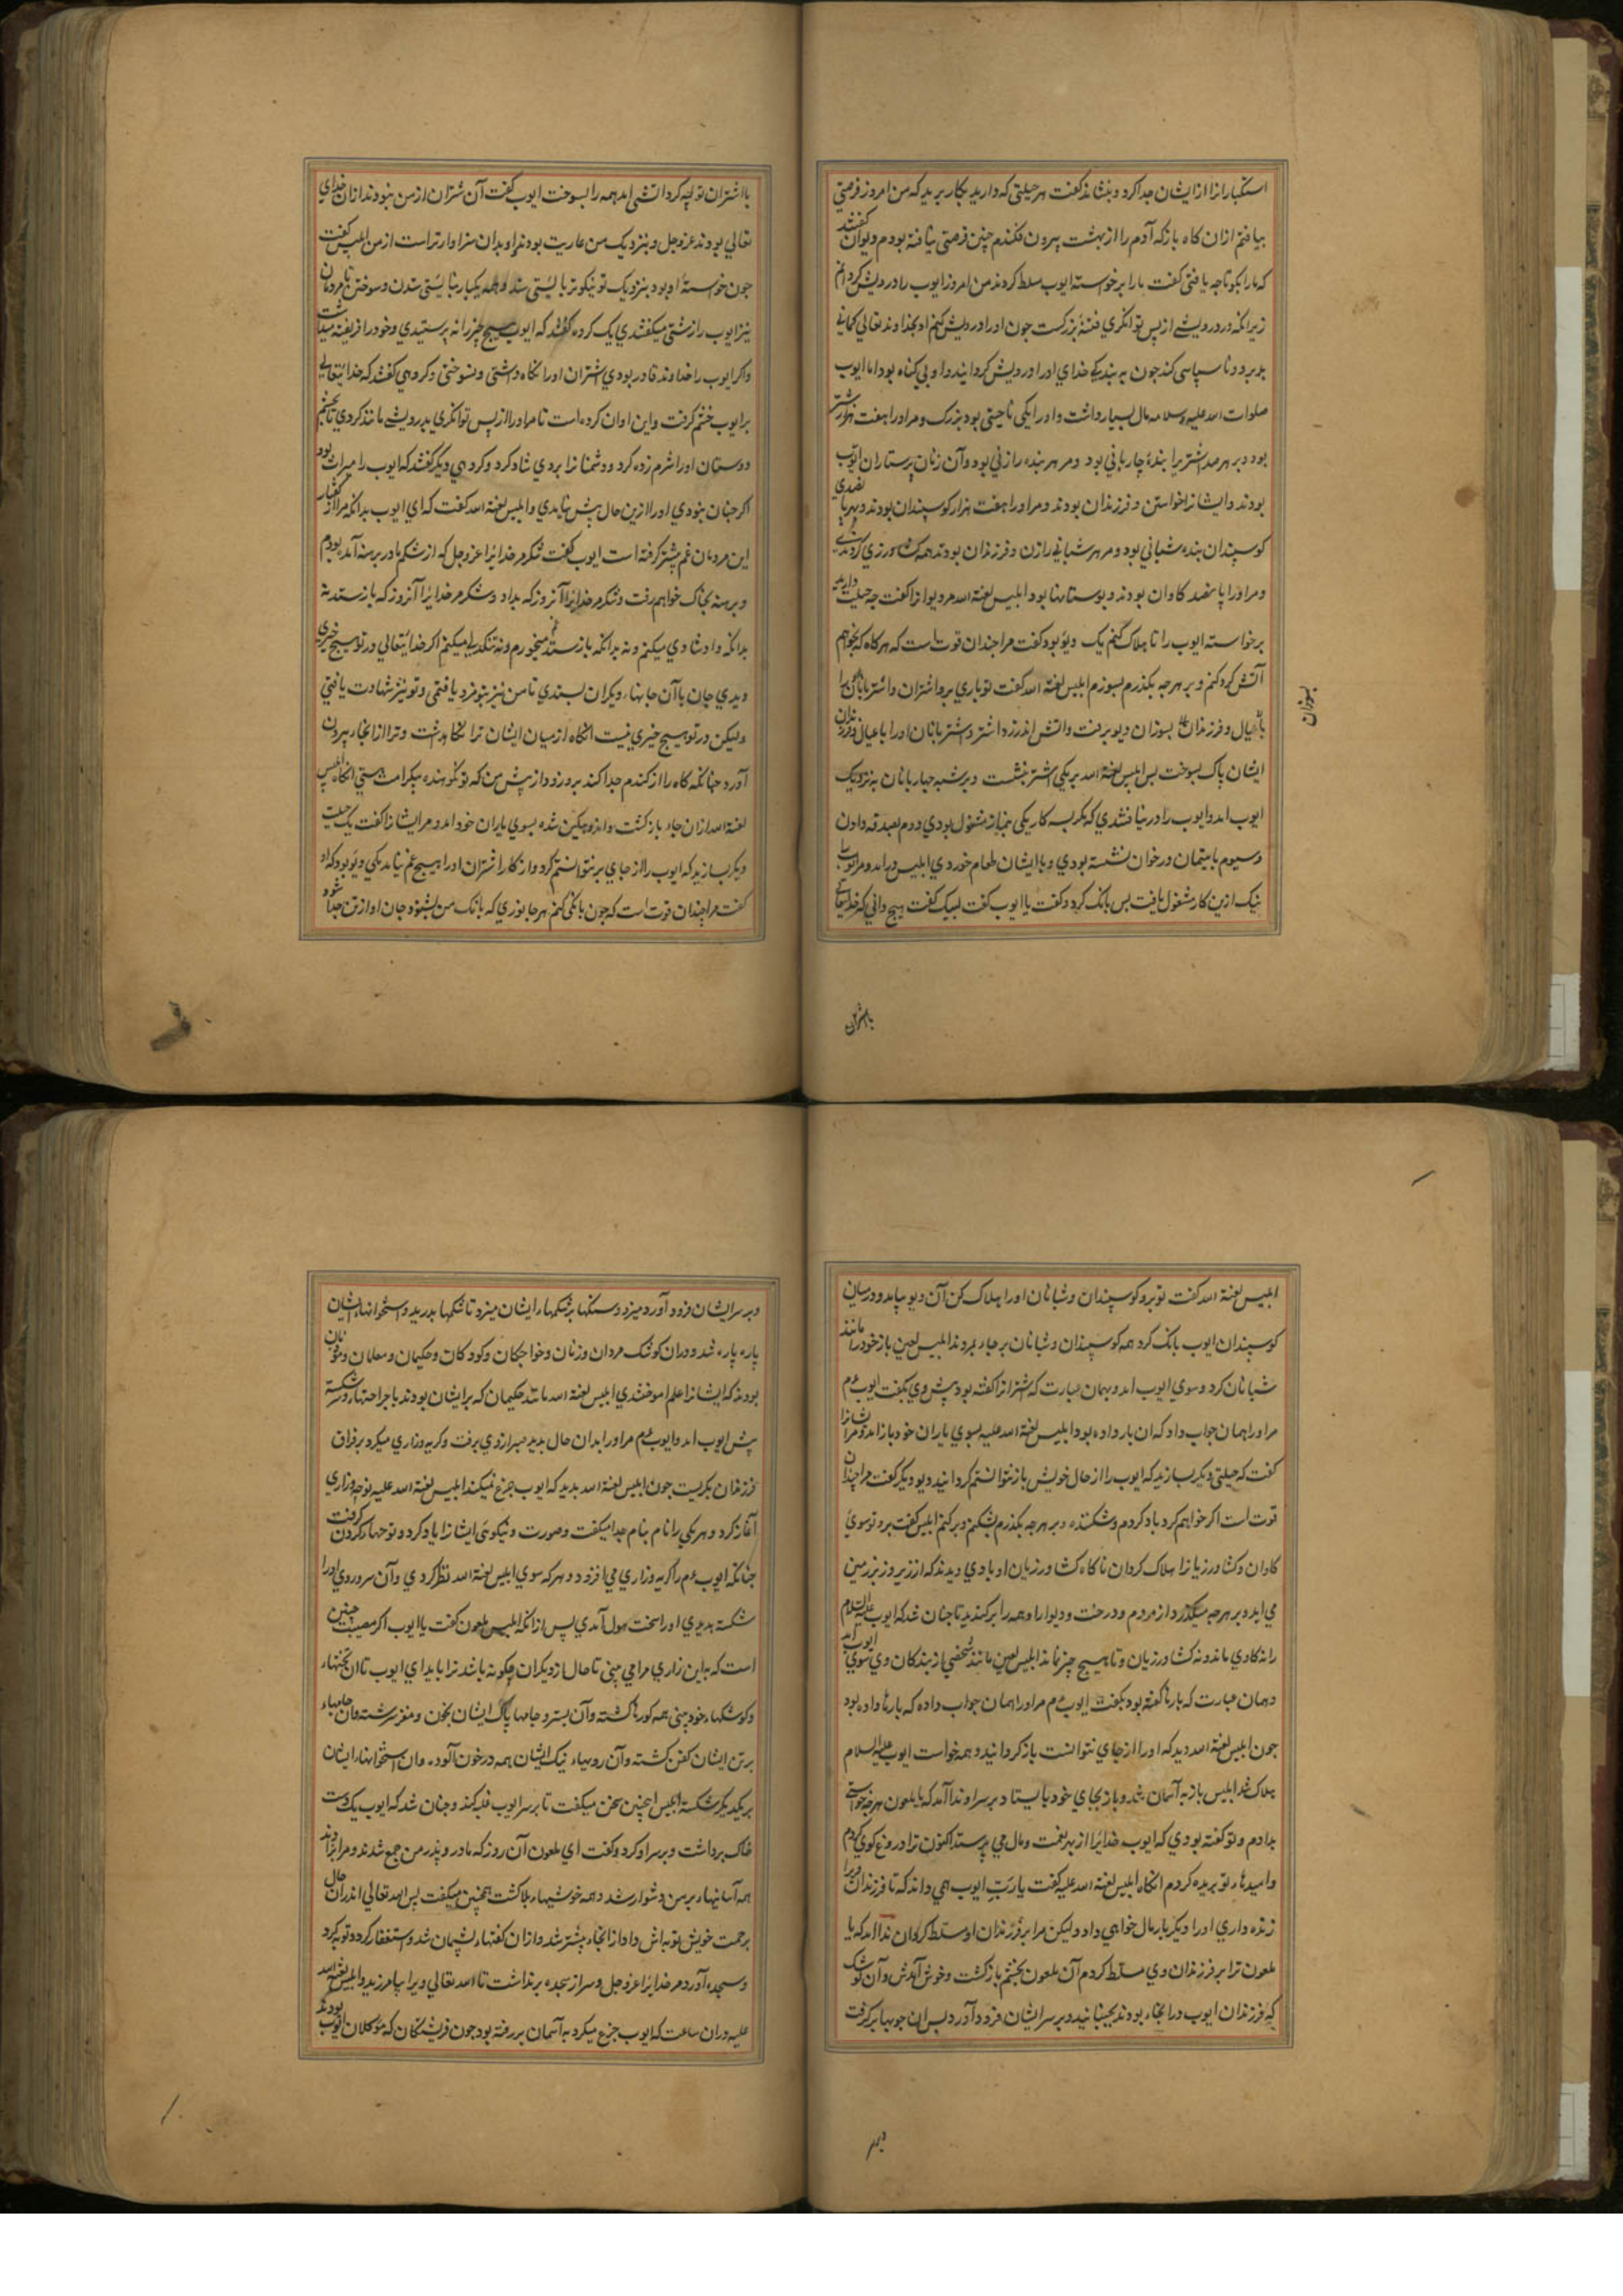 استکبارانرا از ایشان جدا کرد و بنشاند کفت هر حیلتی که دارید بکار برید که من امروز فرصتی
بیافتم ازان کاه باز که آدم را از بهشت بیرون فکندم چنین فرصتی نیافته بودم دیوان کفتند
که مارا بکو تا چه یافتی کفت مارا بر خواسته ایوب مسلط کردند من امروز ایوب را درویش کردانم
زیرانکه در درویشی از پس توانکری فتنهٔ بزرکست جون اورا درویش کنم او بخداوند تعالی
بد برد و ناسپاسی کند جون به بیند که خدای اورا درویش کردانید و او بی کناه بود اما ایوب
صلوات الله علیه و سلامه مال بسیار داشت و اورا یکی ناحیتی بود بزرک و مر اورا هفت هزار شتر
بود و بر هر صد اشتر یرا بندهٔ جاربانی بود و مر هر بنده را زنی بود و آن زنان پرستاران ایوب
بودند و ایشانرا خواستن و فرزندان بودند و مر اورا هفت هزار کوسپندان بودند و بهر پانصدی
کوسپندان بنده شبانی بود و مر هر شبانی را زن و فرزندان بودند همه کشاورزی کردندی
و مر اورا پانصد کاوان بودند و بوستانها بود ابلیس لعنة الله مر دیوانرا کفت چه حیلت دارید
بر خواسته ایوب را تا هلاک کنم یک دیو بود کفت مرا جندان قوت است که هر کاه که بخواهم
آتش کرد کنم و بر هر چه بکذرم بسوزم ابلیس لعنة الله کفت تو باری برو اشتران و اشتربانان را
با عیال و فرزندان بسوزان دیو برفت و آتش اندر زد اشتر و شتربانان اورا با عیال و فرزندان
بسوزان
ایشان پاک بسوخت بس ابلیس لعنة الله بر یکی اشتر بنشست و بر شبه جاربانان به نزدیک
ایوب آمد و ایوب را در نیافتندی که مکر بسه کار یکی بنماز مشغول بودی دوم بصدقه دادن
و سیوم با یتیمان در خوان نشسته بودی و با ایشان طعام خوردی ابلیس در آمد و مر ایوب را
نیک ازین کار مشغول یافت بس بانک کرد و کفت یا ایوب کفت لبیک کفت هیچ دانی که خدایتعالی
با اشتران
با اشتران تو چه کرد آتشی آمد همه را بسوخت ایوب کفت آن شتران از من نبودند ازان خدای
تعالی بودند عز و جل و بنزدیک من عاریت بودند و او بدان سزاوارتر است از من ابلیس کفت
جون خواسته او بود بنزدیک تو نیکوتر بایستی شد و همه یکبار نبایستی شدن و سوختن تا مردمان
نیز ایوب را زشتی میکفتندی یک کروه کفتند که ایوب هیچ چیز را نه پرستیدی و خود را فریفته میداشت
و اکر ایوب را خداوند قادر بودی اشتران اورا نکاه داشتی و نسوختی و کروهی کفتند که خدایتعالی
بر ایوب خشم کرفت و این اوان کرده است تا مر اورا از پس توانکری بدرویشی مانند کردی تا بخشم
دوستان اورا شرم زده کرد و دشمنانرا بر وی شاد کرد و کروهی دیکر کفتند که ایوب را میراث بود
اکر چنان بنودی اورا ازین حال پیش نیامدی و ابلیس لعنة الله کفت که ای ایوب بدانکه مرا از کفتار
این مردمان غم بیشتر کرفته است ایوب کفت شکر مر خدایرا عز و جل که از شکم مادر برهنه آمده بودم
و برهنه بخاک خواهم رفت و شکر مر خدایرا آنروز که بداد و شکر مر خدایرا آنروز که بازستد نه
بدانکه داد شادی میکنم و نه بدانکه بازستد غم میخورم و نه تنکدلی میکنم اکر خدایتعالی در تو هیچ خیری
دیدی جان با آن جانهاء دیکران بستدی تا من نیز بتو مزد یافتمی و تو نیز شهادت یافتی
ولیکن در تو هیچ خیری نیست آنکاه از میان ایشان ترا نکاهداشت و ترا از انجاء بیرون
آورد جنانکه کاه را از کندم جدا کنند برو زود از پیش من که تو نکوهنده بیکرامت هستی آنکاه ابلیس
لعنة الله ازان جاء بازکشت و اندوهکین شده بسوی یاران خود آمد و مر ایشانرا کفت یک حیلت
دیکر بسازید که ایوب را از جای بر نتوانستم کرد و از کار اشتران اورا هیچ غم نیامد یکی دیو بود که او
کفت مرا چندان قوت است که جون بانکی کنم هر جانوری که بانک من بشنود جان او از تن جدا شود
ابلیس لعنة الله کفت تو برو کوسپندان و شبانان اورا هلاک کن آن دیو بیامد و در میان
کوسپندان ایوب بانک کرد همه کوسپندان و شبانان بر جاء بمردند ابلیس لعین باز خود را مانند
شبانان کرد و سوی ایوب آمد و بهمان عبارت که شترانرا کفته بود پیش وی بکفت ایوب عم
مر اورا همان جواب داد که ان بار داده بود ابلیس لعنة الله علیه بسوی یاران خود باز آمد و مر ایشانرا
کفت که حیلتی دیکر بسازید که ایوب را از حال خویش باز نتوانستم کردانید دیو دیکر کفت مرا چندان
قوت است اکر خواهم کرد باد کردم و شکننده و بر هر چه بکذرم بشکنم و بر کنم ابلیس کفت برو تو سوی
کاوان و کشاورزیانرا هلاک کردان ناکاه کشاورزیان او بادی دیدند که از زیر و زبر زمین
می آید و بر هر چه میکذرد از مردم و درخت و دیوارا و همه را بر کندید تا چنان شد که ایوب علیه السلام
را نه کاوی ماند و نه کشاورزیان و تا هیچ چیز نماند ابلیس لعین مانند شخصی از بندکان وی سوی ایوب آمد
و همان عبارت که بارها کفته بود بکفت ایوب عم مر اورا همان جواب داده که بارها داده بود
جون ابلیس لعنة الله دید که اورا از جای نتوانست باز کردانید و همه خواست ایوب علیه السلام
هلاک شد ابلیس باز به آسمان شد و باز بجای خود بایستاد بر سر او ندا آمد که یا ملعون هر چه خواستی
بدادم و تو کفته بودی که ایوب خدایرا از بهر نعمت و مال می پرستد اکنون ترا دروغ کوی کردم
و امیدهاء تو بریده کردم آنکاه ابلیس لعنة الله علیه کفت یا رب ایوب همی داند که تا فرزندان ویرا
زنده داری اورا دیکر بار مال خواهی داد ولیکن مرا بر فرزندان او مسلط کردان ندا آمد که یا
ملعون ترا بر فرزندان وی مسلط کردم آن ملعون بخشم بازکشت و خوش آمدش و آن کوشک
که فرزندان ایوب در انجاء بودند بجنبانید و بر سر ایشان فرود آورد پس ان چوبها بر کرفت
و بر سر
و بر سر ایشان فرود آورد میزد و سنکها بر شکمهاء ایشان میزد تا شکمها بدرید و استخوانهاء ایشان
پاره پاره شد و دران کوشک مردان و زنان و خواجکان و کودکان و حکیمان و معلمان و مؤدبان
بودند که ایشانرا علم آموختندی ابلیس لعنة الله مانند حکیمان که بر ایشان بودند با جراحتها و سر شکسته
پیش ایوب آمد و ایوب عم مر اورا بدان حال بدید صبر از وی برفت و کریه و زاری میکرد بر فراق
فرزندان بکریست جون ابلیس لعنة الله بدید که ایوب جزع میکند ابلیس لعنة الله علیه نوحه و زاری
آغاز کرد و هر یکی را نام بنام جدا میکفت و صورت و نیکوئی ایشانرا یاد کرد و نوحهاء کردن کرفت
جنانکه ایوب عم را کریه و زاری می افزود و هر که سوی ابلیس لعنة الله نظر کردی و آن سر و روی اورا
شکسته بدیدی اورا سخت هول آمدی پس ازانکه ابلیس ملعون کفت یا ایوب اکر مصیبت چنین
است که به این زاری مرا می بینی تا حال از دیکران چکونه باشد ترا بباید ای ایوب تا ان تختهاء
و کوشکهاء خود بینی همه کورها کشته و آن بستر و جامها پاک ایشان بخون و مغز سرشته و ان جامهاء
بر تن ایشان کفن کشته و آن رویهاء نیک ایشان همه در خون آلوده و ان استخوانهاء ایشان
بر یکدیکر شکسته ابلیس اینچنین سخن میکفت تا بر سر ایوب غلبه کند و چنان شد که ایوب یک دست
خاک برداشت و بر سر او کرد و کفت ای ملعون آن روز که مادر و پدر من جمع شدند و مرا بزادند
همه آسانیهاء بر من دشوار شد و همه خوشیهاء بلا کشت همچنین میکفت پس الله تعالی اندران حال
برحمت خویش توبه اش داد از انجاء بیشتر شد و ازان کفتهاء پشیمان شد و استغفار کرد و توبه کرد
و سجده آورد مر خدایرا عز و جل و سر از سجده برنداشت تا الله تعالی ویرا بیامرزید و ابلیس لعنة الله
علیه دران ساعت که ایوب جزع میکرد به آسمان بر رفته بود جون فریشتکان که موکلان ایوب بودند